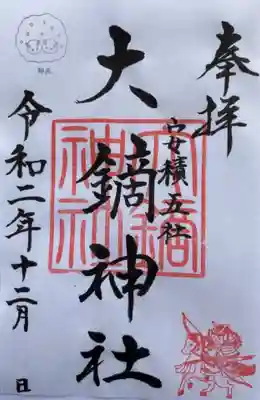 奉拝
安積五社
大鏑神社
大鏑神社
令和二年十二月 日